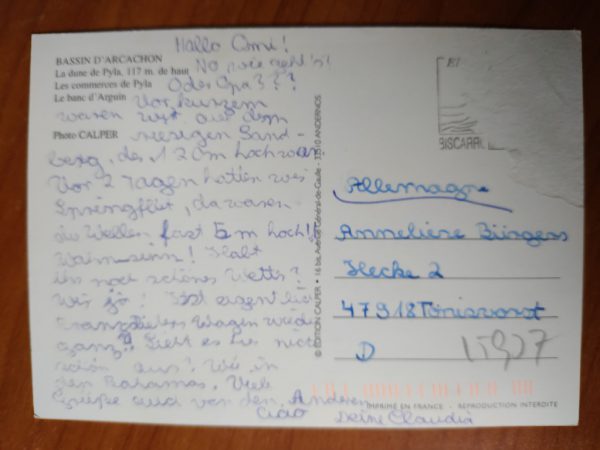 Hallo Omi!
BASSIN D'ARCACHON
La dune de Pyla, 117 m. de haut
Les commerces de Pyla
Le banc d'Arguin
Photo CALPER
No, wie geht's!
Oder Opa???
Vor kurzem
waren wir auf dem
riesigen Sand-
berg, der 120m hoch war.
Vor 2 Tagen hatten wir
Springflut, da waren
die Wellen fast 5m hoch!!
Wahnsinn! Habt
ihr noch schönes
Wir jo! Ist eigentlich
Wagen wieder
ganz? Sieht es hier nicht
schön aus! Wie in
den Bahamas. Viele
Grüße auch von den Anderen
Ciao Deine Claudia
© ÉDITION CALPER • 16 bis, Avenue Général-de-Gaulle - 33510 ANDERNOS
BISCARR
Allemagne
Anneliese Bürgers
Hecke 2
47918 Tönisvorst
D
15907
IMPRIMÉ EN FRANCE - REPRODUCTION INTERDITE